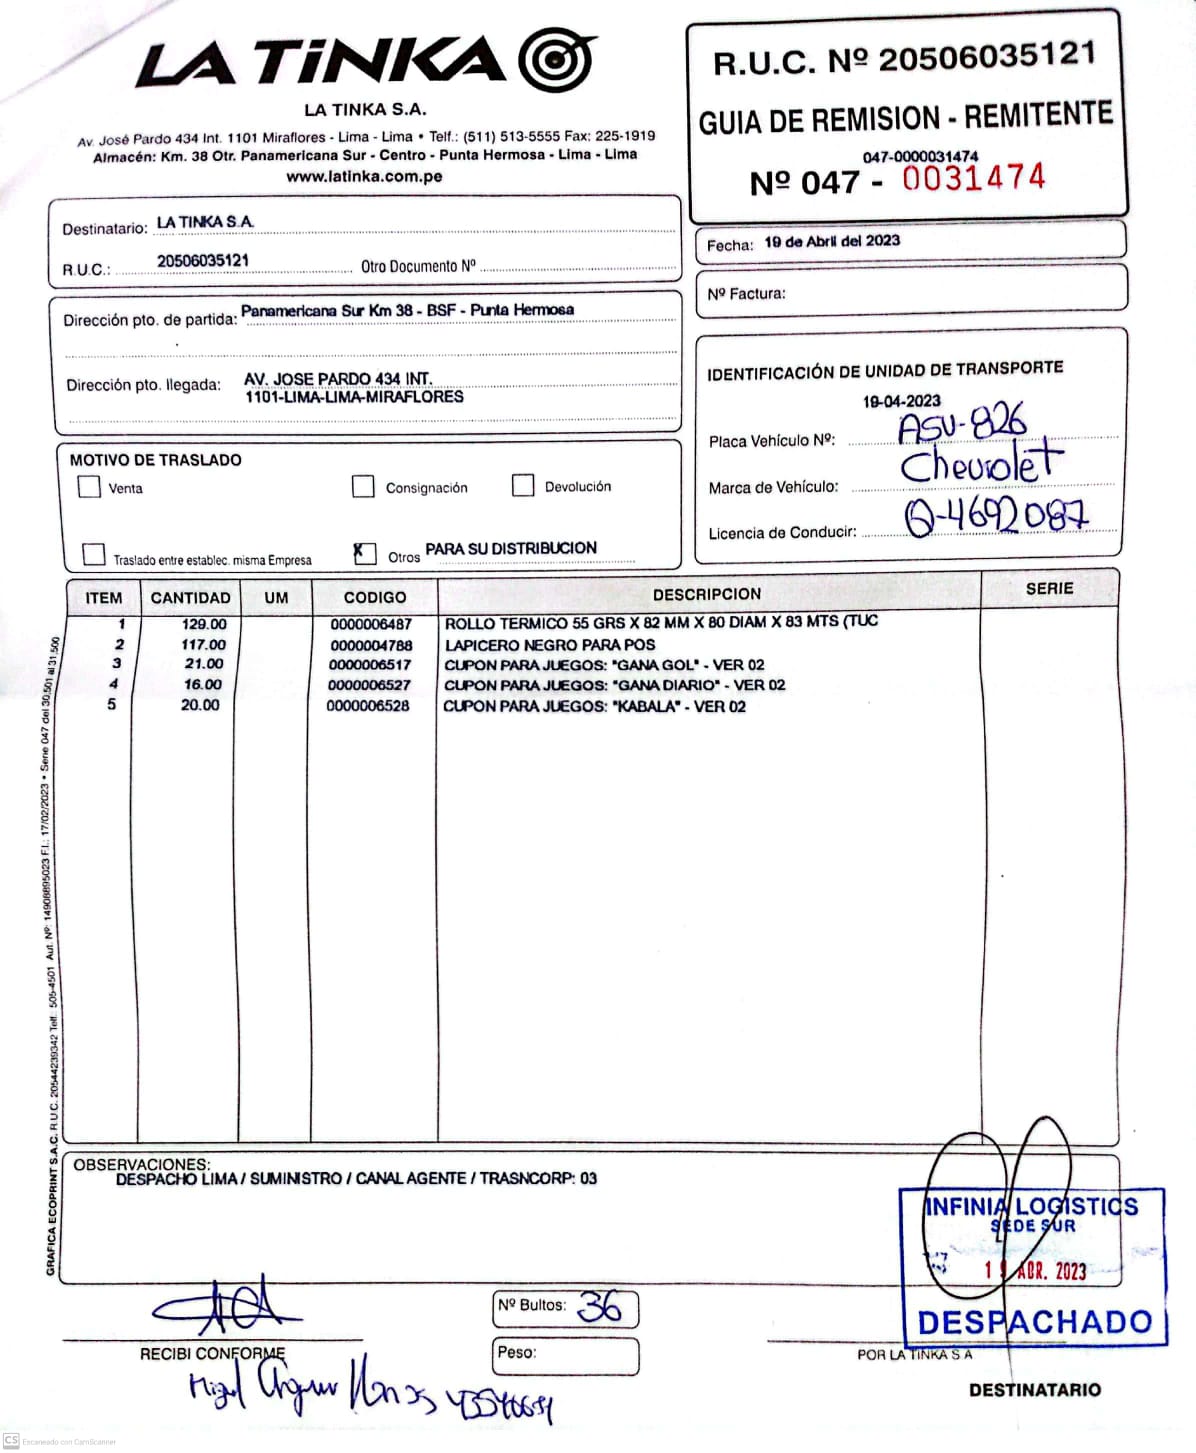 LA TiNKA
LA TINKA S.A.
Av. José Pardo 434 Int. 1101 Miraflores - Lima - Lima • Telf.: (511) 513-5555 Fax: 225-1919
Almacén: Km. 38 Otr. Panamericana Sur - Centro - Punta Hermosa - Lima - Lima
www.latinka.com.pe
R.U.C. Nº 20506035121
GUIA DE REMISION - REMITENTE
047-0000031474
Nº 047 - 0031474
Destinatario: LA TINKA S.A.
R.U.C.: 20506035121 Otro Documento Nº
Fecha: 19 de Abril del 2023
Nº Factura:
Dirección pto. de partida: Panamericana Sur Km 38 - BSF - Punta Hermosa
Dirección pto. llegada: AV. JOSE PARDO 434 INT.
1101-LIMA-LIMA-MIRAFLORES
IDENTIFICACIÓN DE UNIDAD DE TRANSPORTE
19-04-2023
Placa Vehículo Nº: ASU-826
Marca de Vehículo: Chevrolet
Licencia de Conducir: Q-4692087
MOTIVO DE TRASLADO
Venta Consignación Devolución
Traslado entre establec. misma Empresa X Otros PARA SU DISTRIBUCION
ITEM CANTIDAD UM CODIGO DESCRIPCION SERIE
1 129.00 0000006487 ROLLO TERMICO 55 GRS X 82 MM X 80 DIAM X 83 MTS (TUC
2 117.00 0000004788 LAPICERO NEGRO PARA POS
3 21.00 0000006517 CUPON PARA JUEGOS: "GANA GOL" - VER 02
4 16.00 0000006527 CUPON PARA JUEGOS: "GANA DIARIO" - VER 02
5 20.00 0000006528 CUPON PARA JUEGOS: "KABALA" - VER 02
GRAFICA ECOPRINT S.A.C. R.U.C. 20544239342 Telf.: 505-4501 Aut. Nº: 14908895023 F.I.: 17/02/2023 • Serie 047 del 30,501 al 31,500
OBSERVACIONES:
DESPACHO LIMA / SUMINISTRO / CANAL AGENTE / TRASNCORP: 03
INFINIA LOGISTICS
SEDE SUR
19 ABR. 2023
DESPACHADO
Nº Bultos: 36
Peso:
RECIBI CONFORME
POR LA TINKA S A
DESTINATARIO
CS Escaneado con CamScanner